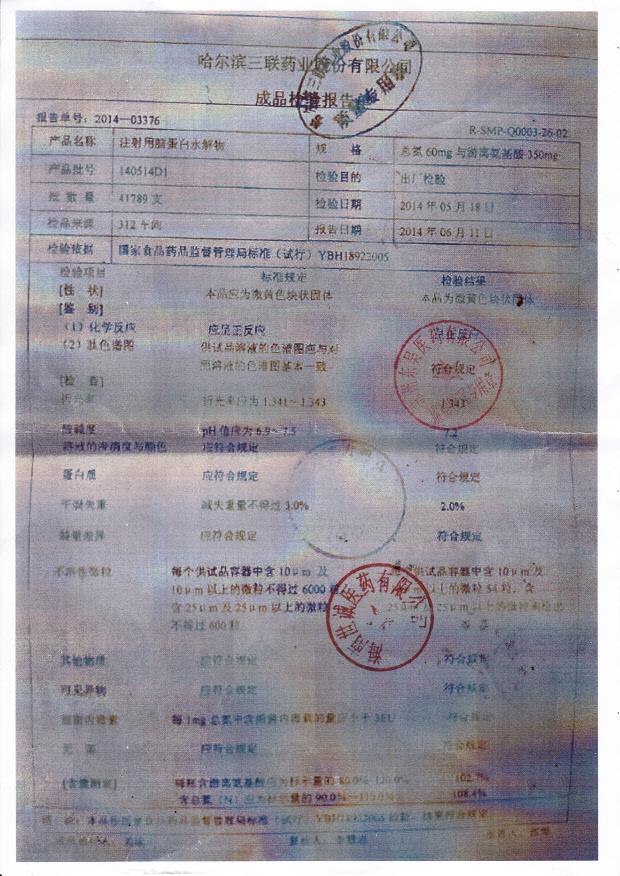 哈尔滨三联药业股份有限公司
成品检验报告
报告单号: 2014—03376
R-SMP-Q0003-26-02
产品名称 注射用脑蛋白水解物 规 格 总氮 60mg 与游离氨基酸 350mg
产品批号 140514D1 检验目的 出厂检验
批 数 量 41789 支 检验日期 2014 年 05 月 18 日
检品来源 312 车间 报告日期 2014 年 06 月 11 日
检验依据 国家食品药品监督管理局标准（试行）YBH18922005
检验项目 标准规定 检验结果
[性 状] 本品应为微黄色块状固体 本品为微黄色块状固体
[鉴 别]
（1）化学反应 应呈正反应
（2）肽色谱图 供试品溶液的色谱图应与对 符合规定
照溶液的色谱图基本一致
[检 查]
折光率 折光率应为 1.341～1.343 1.343
酸碱度 pH 值应为 6.9～7.5 7.2
溶液的澄清度与颜色 应符合规定 符合规定
蛋白质 应符合规定 符合规定
干燥失重 减失重量不得过 3.0% 2.0%
装量差异 应符合规定 符合规定
不溶性微粒 每个供试品容器中含 10μm 及 供试品容器中含 10μm 及
10μm 以上的微粒不得过 6000 粒 以上的微粒 54 粒，含
含 25μm 及 25μm 以上的微粒 25μm 及 25μm 以上的微粒
不得过 600 粒
其他物质 应符合规定 符合规定
可见异物 应符合规定 符合规定
细菌内毒素 每 1mg 总氮中含细菌内毒素的量应小于 3EU 符合规定
无 菌 应符合规定 符合规定
[含量测定] 每瓶含游离氨基酸应为标示量的 80.0%～120.0% 102.7%
含总氮（N）应为标示量的 90.0%～110.0% 108.4%
结 论：本品按国家食品药品监督管理局标准（试行）YBH18922005 检验，结果符合规定
海南世诚医药有限公司